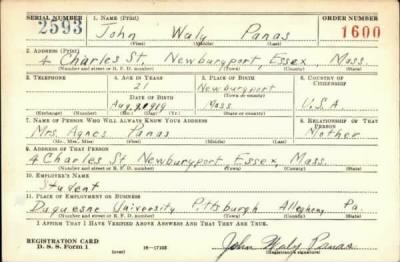 SERIAL NUMBER 1. NAME (Print) ORDER NUMBER
2593 John Waly Panas 1600
(First) (Middle) (Last)
2. ADDRESS (Print)
4 Charles St. Newburyport, Essex, Mass.
(Number and street or R. F. D. number) (Town) (County) (State)
3. TELEPHONE 4. AGE IN YEARS 5. PLACE OF BIRTH 6. COUNTRY OF CITIZENSHIP
21 Newburyport
DATE OF BIRTH (Town or county)
Aug. 9, 1919 Mass U.S.A
(Exchange) (Number) (Mo.) (Day) (Yr.) (State or country)
7. NAME OF PERSON WHO WILL ALWAYS KNOW YOUR ADDRESS 8. RELATIONSHIP OF THAT PERSON
Mrs. Agnes Panas Mother
(Mr., Mrs., Miss) (First) (Middle) (Last)
9. ADDRESS OF THAT PERSON
4 Charles St. Newburyport, Essex, Mass.
(Number and street or R. F. D. number) (Town) (County) (State)
10. EMPLOYER'S NAME
Student
11. PLACE OF EMPLOYMENT OR BUSINESS
Duquesne University Pittsburgh Allegheny Pa.
(Number and street or R. F. D. number) (Town) (County) (State)
I AFFIRM THAT I HAVE VERIFIED ABOVE ANSWERS AND THAT THEY ARE TRUE.
REGISTRATION CARD
D. S. S. Form 1 (over) 16—17105 John Waly Panas